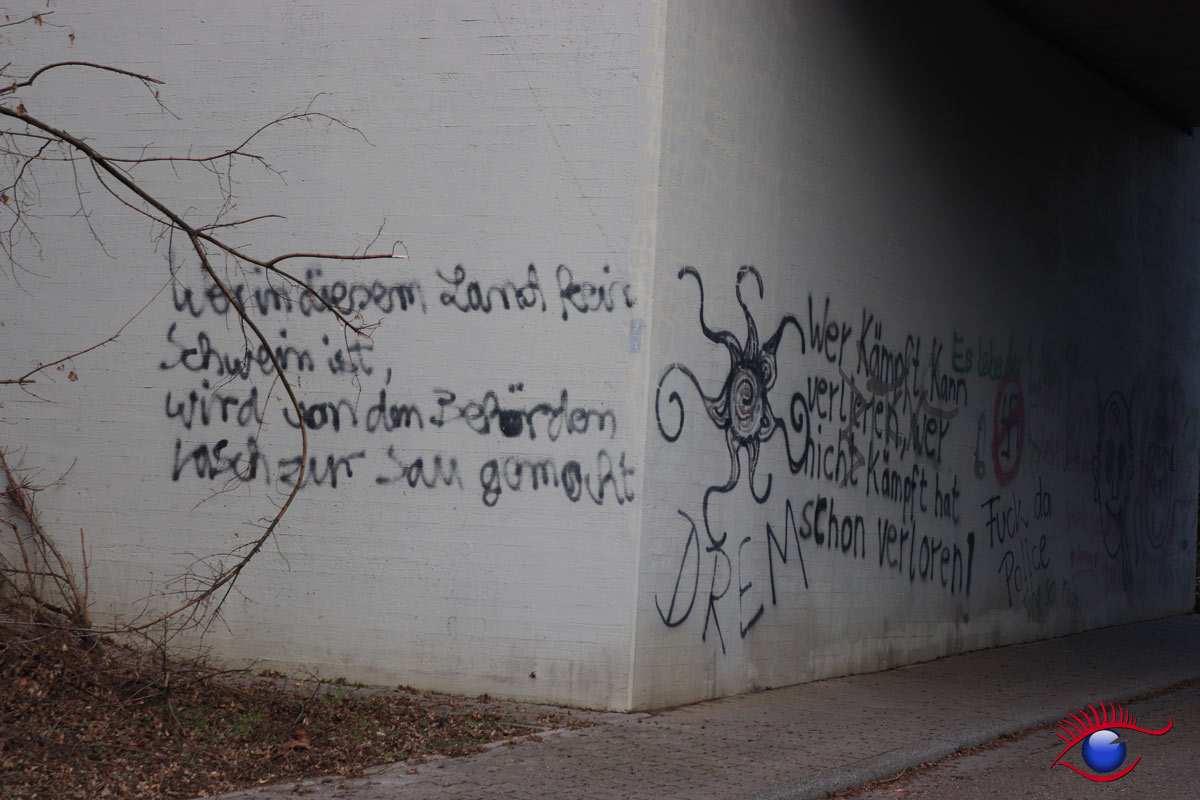 Wer in diesem Land kein
Schwein ist,
wird von den Behörden
rasch zur Sau gemacht
Wer Kämpft Kann
verlieren, wer
nicht Kämpft hat
schon verloren!
DREM
Es lebe
Fuck da
Police